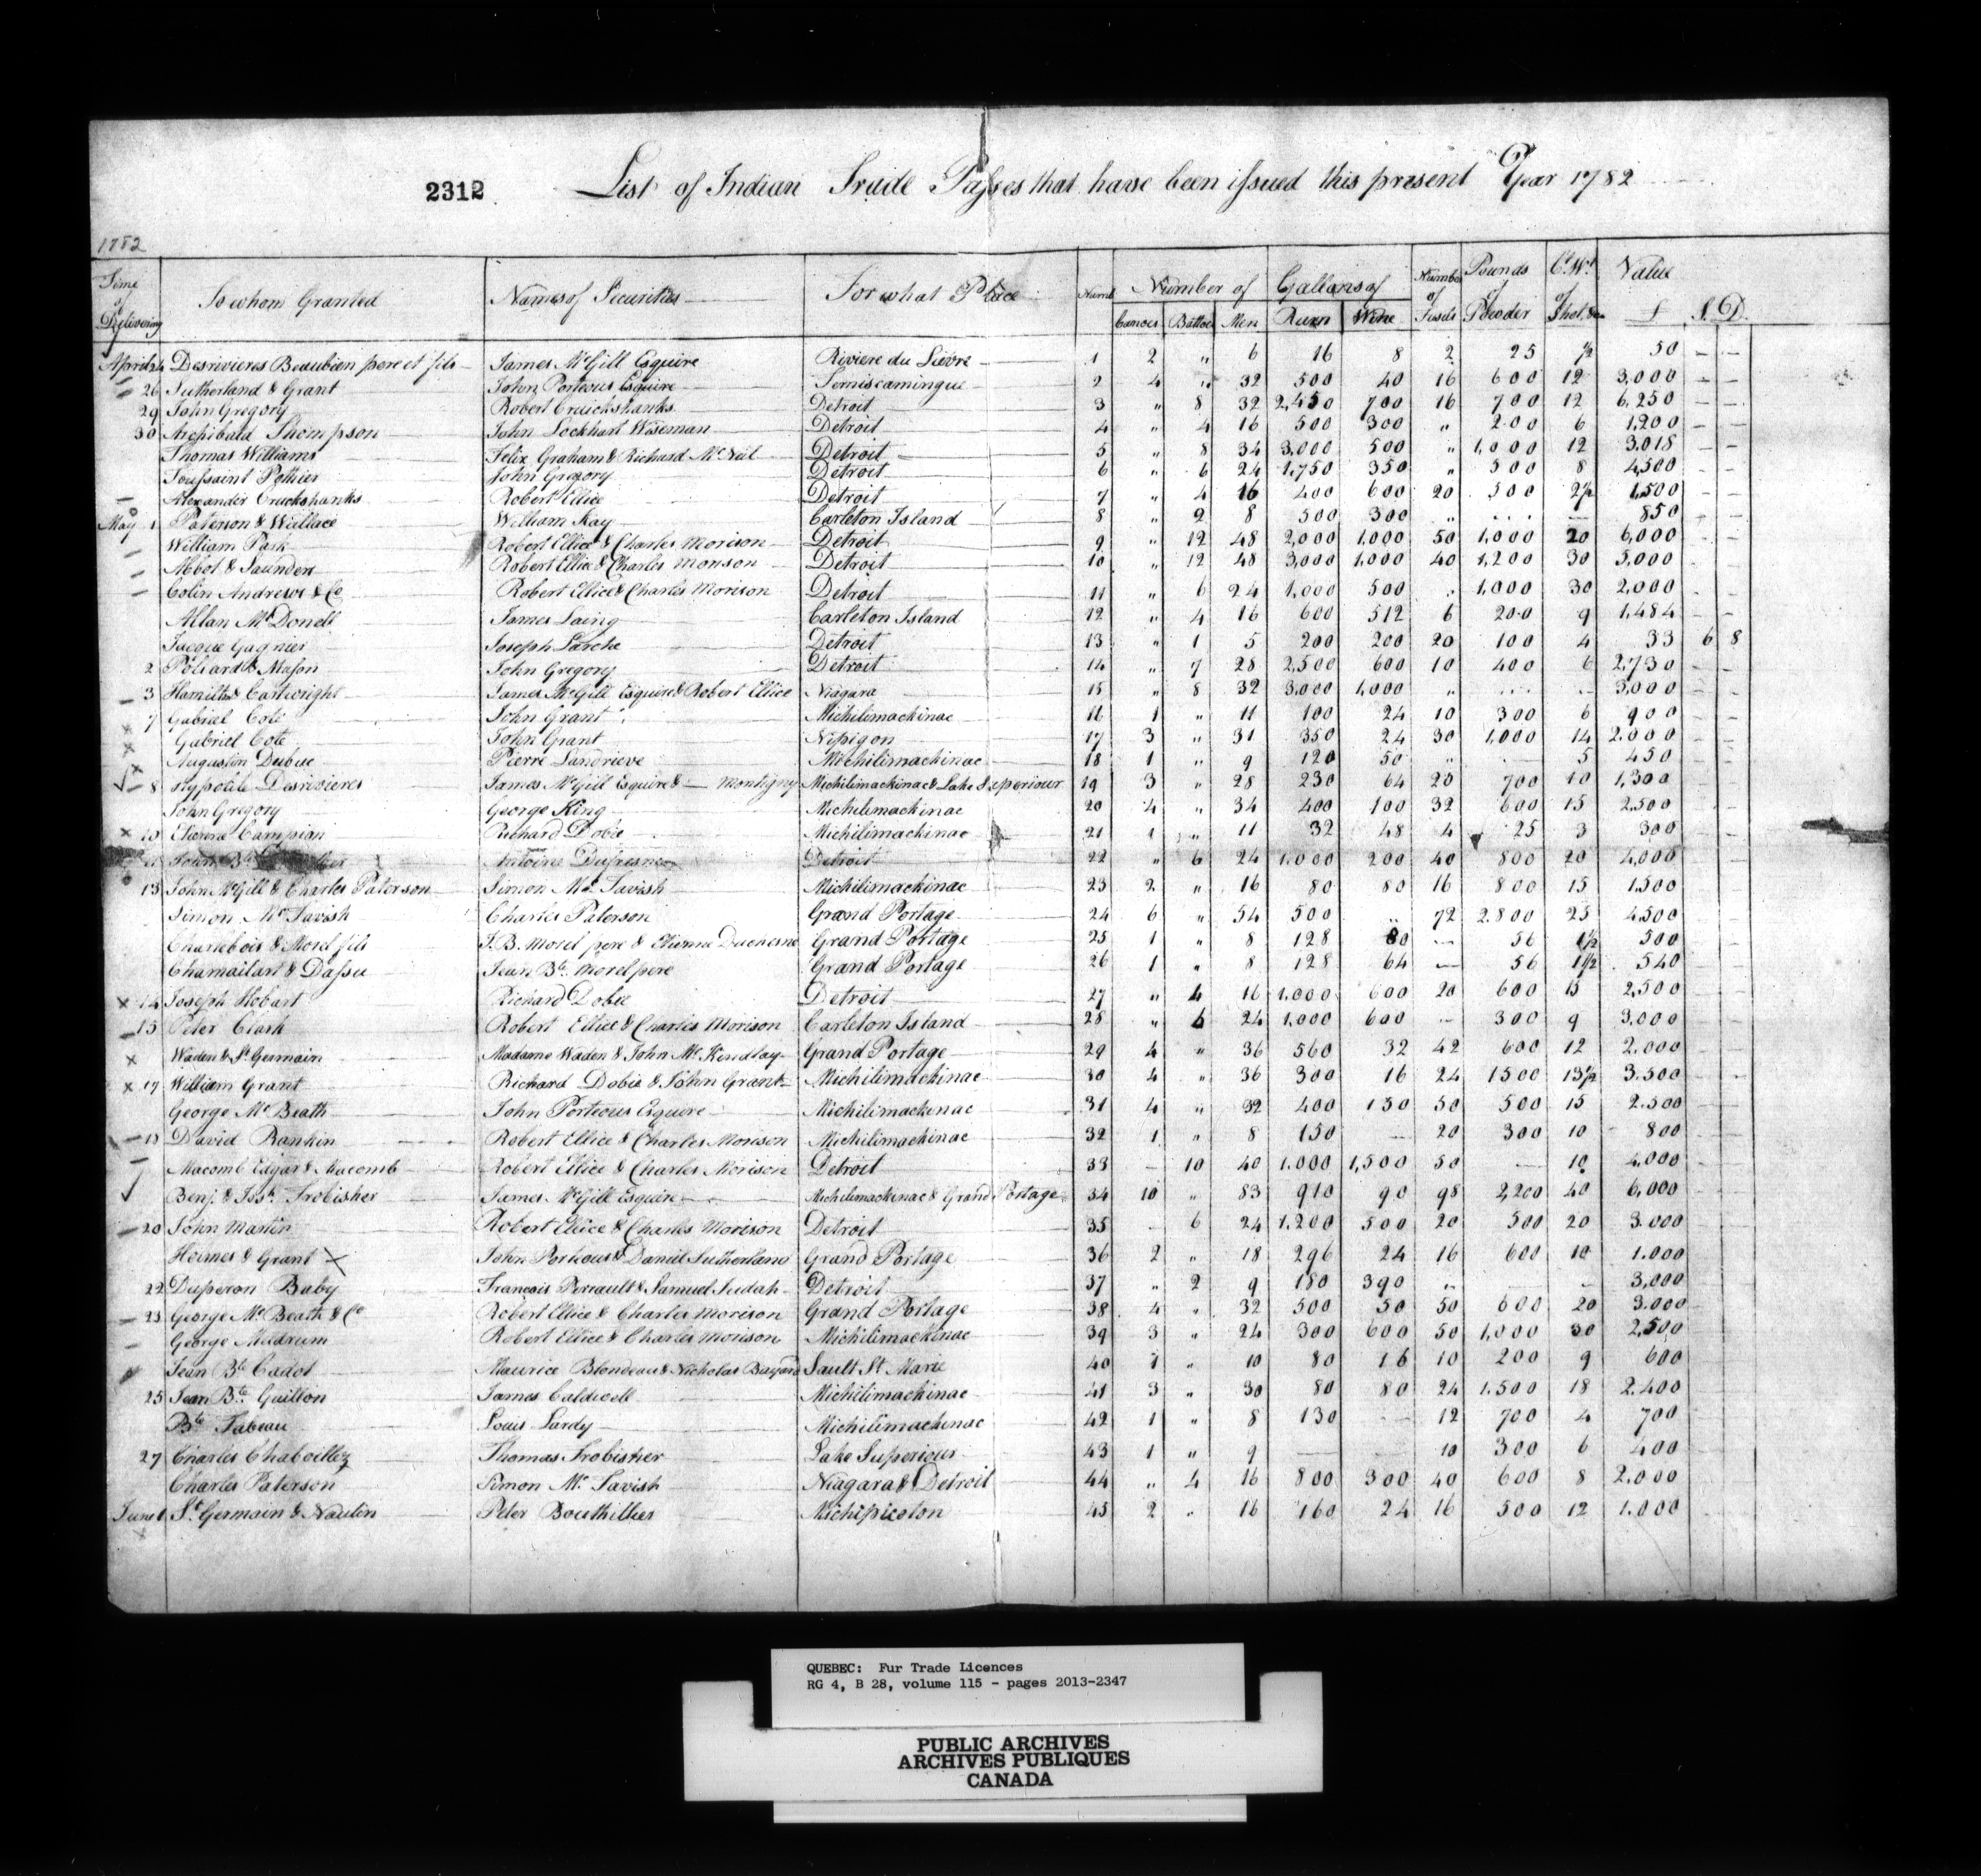 2312 List of Indian Trade Passes that have been issued this present Year 1782
1782
Time of Delivering To whom Granted Names of Securities For what Place Numb Number of Gallons of Number of Fusils Pounds of Powder Ct. Wt. of Shot, &c Value
Canoes Battoes Men Rum Wine £ S. D.
April 24 Desrivieres Beaubien pere et fils James McGill Esquire Riviere du Lièvre 1 2 " 6 16 8 2 25 ½ 50 — —
26 Sutherland & Grant John Porteous Esquire Temiscamingue 2 4 " 32 500 40 16 600 12 3,000 — —
29 John Gregory Robert Cruickshanks Detroit 3 " 8 32 2,450 700 16 700 12 6,250 — —
30 Archibald Thompson John Lockhart Wiseman Detroit 4 " 4 16 500 300 " 200 6 1,200 — —
Thomas Williams Felix Graham & Richard McNeil Detroit 5 " 8 34 3,000 500 " 1,000 12 3,018 — —
Toussaint Pothier John Gregory Detroit 6 " 6 24 1,750 350 " 300 8 4,500 — —
Alexander Cruckshanks Robert Ellice Detroit 7 " 4 16 400 600 20 500 2½ 1,500 — —
May 1 Paterson & Wallace William Kay Carleton Island 8 " 2 8 500 300 " ... — 850 — —
William Park Robert Ellice & Charles Morison Detroit 9 " 12 48 2,000 1,000 50 1,000 20 6,000
Abbot & Saunders Robert Ellice & Charles Morison Detroit 10 " 12 48 3,000 1,000 40 1,200 30 5,000
Colin Andrews & Co Robert Ellice & Charles Morison Detroit 11 " 6 24 1,000 500 " 1,000 30 2,000
Allan McDonell James Laing Carleton Island 12 " 4 16 600 512 6 200 9 1,484
Jacque Gagnier Joseph Larche Detroit 13 " 1 5 200 200 20 100 4 33 6 8
2 Poliard & Mason John Gregory Detroit 14 " 7 28 2,500 600 10 400 6 2,730
3 Hamilton & Cartwright James McGill Esquire & Robert Ellice Niagara 15 " 8 32 3,000 1,000 " ... — 3,000
7 Gabriel Cote John Grant Michilimackinac 16 1 " 11 100 24 10 300 6 900
Gabriel Cote John Grant Nipigon 17 3 " 31 350 24 30 1,000 14 2.000
Augustin Dubuc Pierre Landrieve Michilimackinac 18 1 " 9 120 50 " — 5 450
8 Hypolite Desrivieres James McGill Esquire & — Montigny Michilimackinac & Lake Superiour 19 3 " 28 230 64 20 700 10 1,300
John Gregory George King Michilimackinac 20 4 " 34 400 100 32 600 15 2.500
10 Etienne Campian Richard Dobie Michilimackinac 21 1 " 11 32 48 4 25 3 300
11 Antoine Dufresne Detroit 22 " 6 24 1,000 200 40 800 20 4,000
13 John McGill & Charles Paterson Simon McTavish Michilimackinac 23 2 " 16 80 80 16 800 15 1.500
Simon McTavish Charles Paterson Grand Portage 24 6 " 54 500 " 72 2.800 25 4,500
Charlebois & Morel fils J.B. Morel pere & Etienne Duchesne Grand Portage 25 1 " 8 128 80 — 56 1½ 500
Chamailart & Dassu Jean Bte. Morel pere Grand Portage 26 1 " 8 128 64 — 56 1½ 540
14 Joseph Hobart Richard Dobie Detroit 27 " 4 16 1,000 600 20 600 15 2,500
15 Peter Clark Robert Ellice & Charles Morison Carleton Island 28 " 6 24 1,000 600 — 300 9 3.000
Waden & St. Germain Madame Waden & John McKindlay Grand Portage 29 4 " 36 560 32 42 600 12 2.000
17 William Grant Richard Dobie & John Grant Michilimackinac 30 4 " 36 300 16 24 1500 13½ 3.500
George McBeath John Porteous Esquire Michilimackinac 31 4 " 32 400 130 50 500 15 2.500
18 David Rankin Robert Ellice & Charles Morison Michilimackinac 32 1 " 8 150 — 20 300 10 800
Macomb Edgar & Macomb Robert Ellice & Charles Morison Detroit 33 — 10 40 1.000 1,500 50 — 10 4,000
Benj. & Josh. Frobisher James McGill Esquire Michilimackinac & Grand Portage 34 10 " 83 910 90 98 2,200 40 6,000
20 John Martin Robert Ellice & Charles Morison Detroit 35 — 6 24 1,200 500 20 500 20 3.000
Holmes & Grant John Porteous & Daniel Sutherland Grand Portage 36 2 " 18 296 24 16 600 10 1.000
22 Duperon Baby Francois Perrault & Samuel Judah Detroit 37 " 2 9 180 390 " — 3,000
23 George McBeath & Co Robert Ellice & Charles Morison Grand Portage 38 4 " 32 500 50 50 600 20 3.000
George Meldrum Robert Ellice & Charles Morison Michilimackinac 39 3 " 24 300 600 50 1,000 30 2,500
Jean Bte Cadot Maurice Blondeau & Nicholas Bayard Sault St. Marie 40 1 " 10 80 16 10 200 9 600
25 Jean Bte. Guillon James Caldwell Michilimackinac 41 3 " 30 80 80 24 1.500 18 2.400
Bte Tabeau Louis Lardy Michilimackinac 42 1 " 8 130 — 12 700 4 700
27 Charles Chaboillez Thomas Frobisher Lake Superiour 43 1 " 9 — — 10 300 6 400
Charles Paterson Simon McTavish Niagara & Detroit 44 " 4 16 800 300 40 600 8 2.000
June 1 St. Germain & Naulin Peter Bouthillier Michipicoton 45 2 " 16 160 24 16 500 12 1.000
QUEBEC: Fur Trade Licences
RG 4, B 28, volume 115 - pages 2013-2347
PUBLIC ARCHIVES
ARCHIVES PUBLIQUES
CANADA